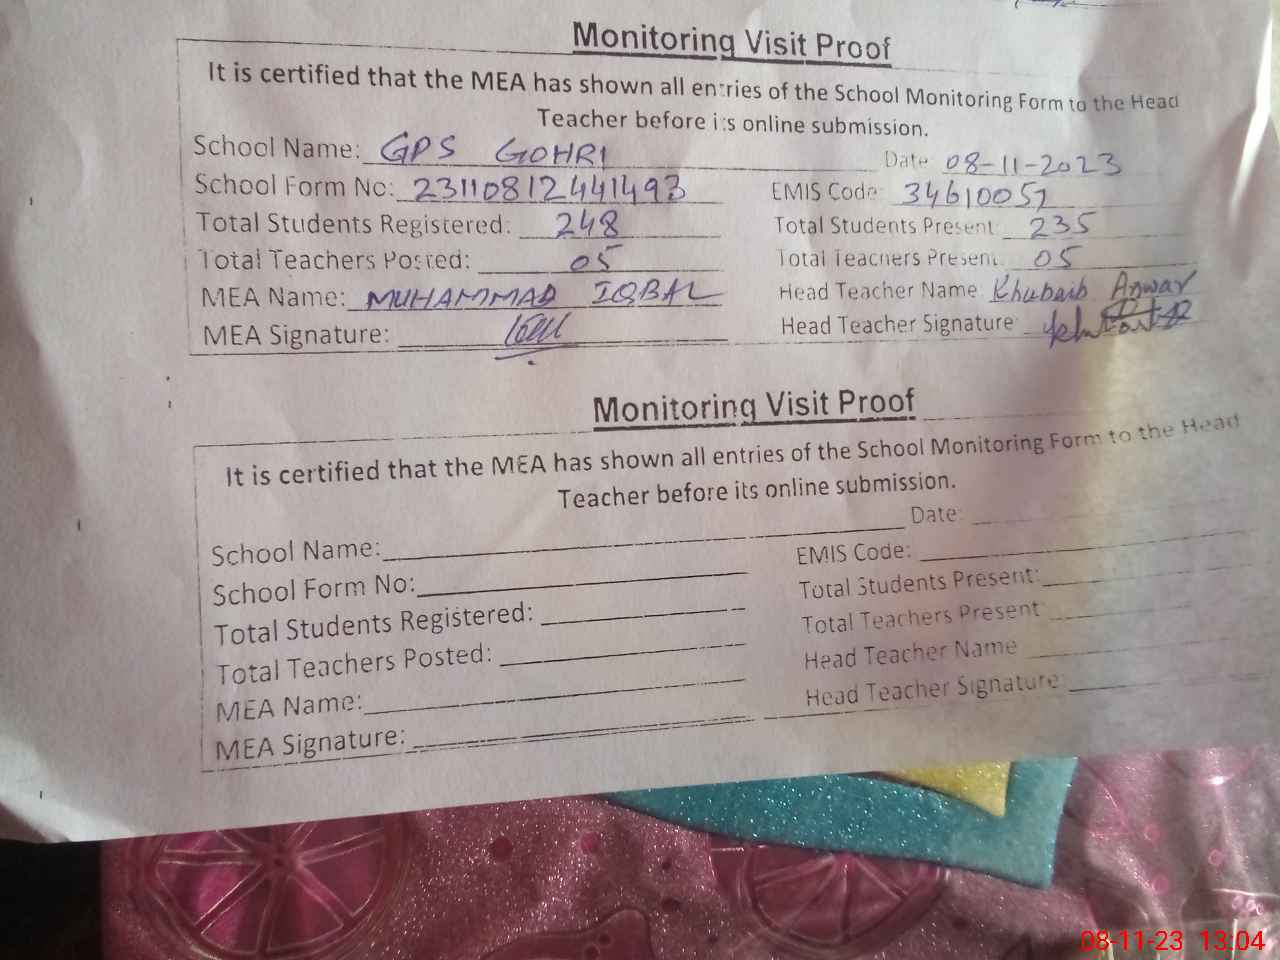 Monitoring Visit Proof
It is certified that the MEA has shown all entries of the School Monitoring Form to the Head
Teacher before its online submission.
School Name: GPS GOHRI Date: 08-11-2023
School Form No: 23110812441493 EMIS Code: 34610051
Total Students Registered: 248 Total Students Present: 235
Total Teachers Posted: 05 Total Teachers Present: 05
MEA Name: MUHAMMAD IQBAL Head Teacher Name Khubaib Anwar
MEA Signature: Head Teacher Signature:
Monitoring Visit Proof
It is certified that the MEA has shown all entries of the School Monitoring Form to the Head
Teacher before its online submission.
School Name: Date:
School Form No: EMIS Code:
Total Students Registered: Total Students Present:
Total Teachers Posted: Total Teachers Present
MEA Name: Head Teacher Name
MEA Signature: Head Teacher Signature:
08-11-23 13:04